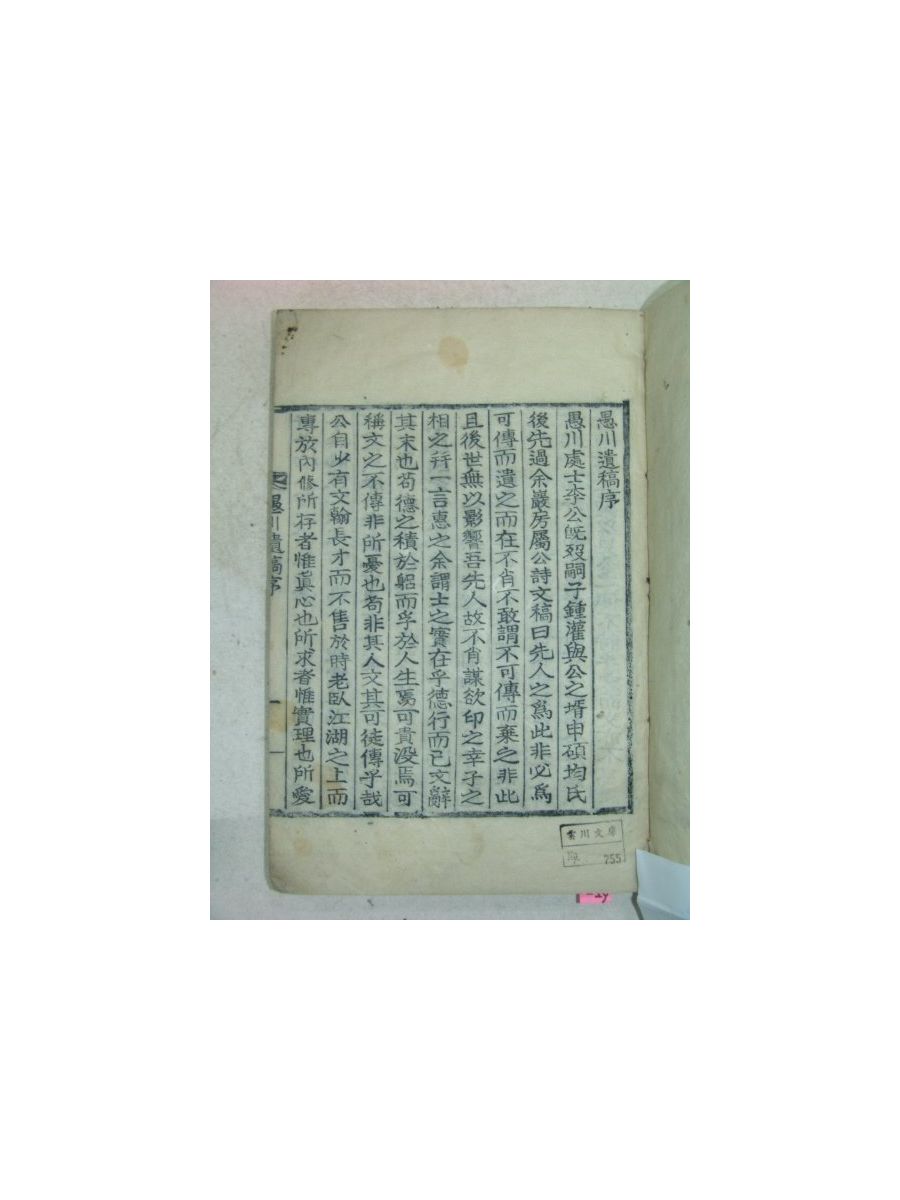 愚川遺稿序
愚川處士李公旣歿嗣子鍾灌與公之壻申碩均氏
後先過余巖房屬公詩文稿曰先人之爲此非必爲
可傳而遺之而在不肖不敢謂不可傳而棄之非此
且後世無以影響吾先人故不肖謀欲印之幸子之
相之行一言惠之余謂士之實在乎德行而已文辭
其末也苟德之積於躬而孚於人生焉可貴没焉可
稱文之不傳非所憂也苟非其人文其可徒傳乎哉
公自少有文翰長才而不售於時老臥江湖之上而
專於內修所存者惟眞心也所求者惟實理也所愛
愚川遺稿序
一
雲川文庫
755
-19